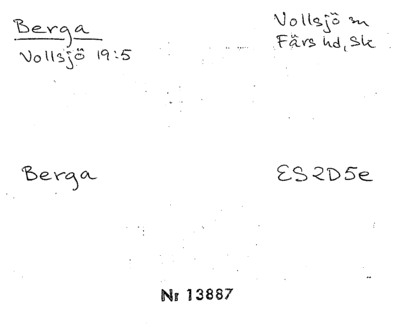 Berga
Vollsjö 19:5
Vollsjö sn
Färs hd, Sk
Berga
ES2D5e
Nr 13887